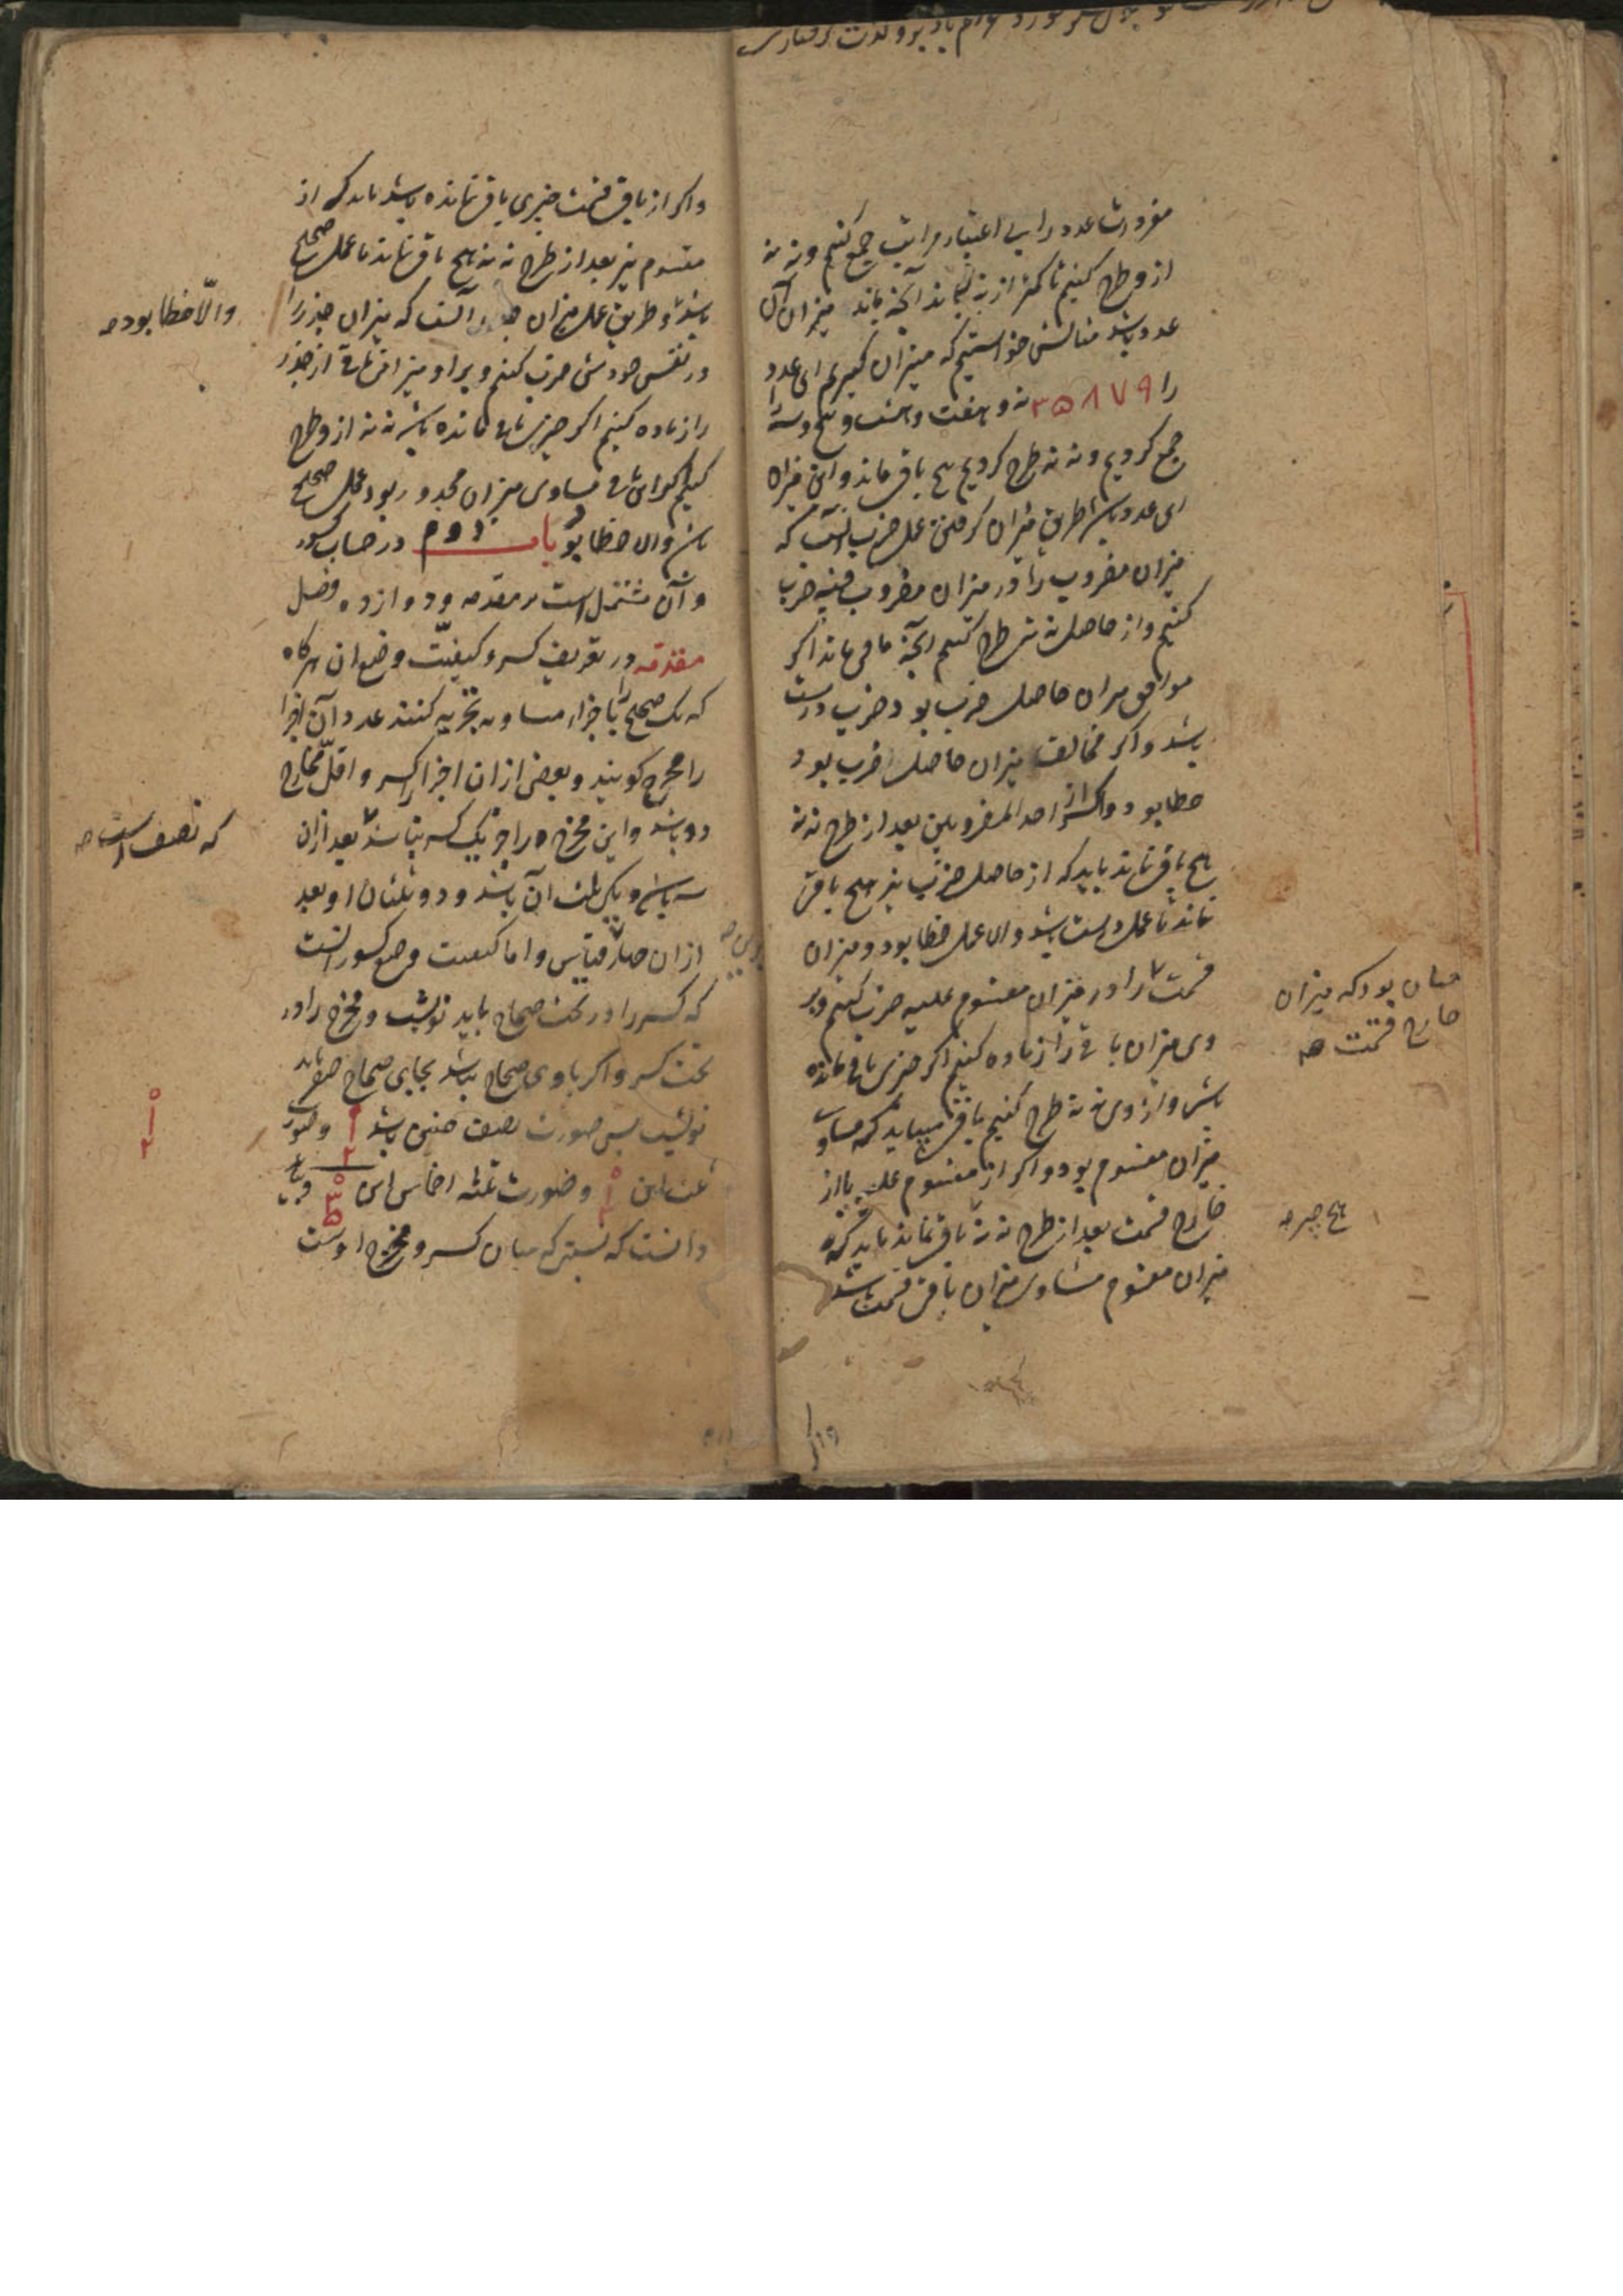 مفردات عدد را بی اعتبار مراتب جمع کنیم و نه نه
از و طرح کنیم تا کمتر از نه بماند آنچه بماند میزان آن
عدد باشد مثالش خواستیم که میزان گیریم این عدد
را ۳۵۸۷۹ نه و هفت و هشت و پنج و سه را
جمع کردیم و نه نه طرح کردیم پنج باقی ماند و این میزان
این عدد باشد طریق میزان گرفتن عمل ضرب آنست که
میزان مضروب را در میزان مضروب فیه ضرب
کنیم و از حاصل نه نه طرح کنیم آنچه باقی ماند اگر
موافق میزان حاصل ضرب بود ضرب درست
باشد و اگر مخالف میزان حاصل ضرب بود
خطا بود و اگر از احد المضروبین بعد از طرح نه نه
هیچ باقی نماند باید که از حاصل ضرب نیز هیچ باقی
نماند تا عمل درست باشد و الا عمل خطا بود و میزان
قسمت را در میزان مقسوم علیه ضرب کنیم و بر
وی میزان باقی را زیاده کنیم اگر چیزی باقی مانده
باشد و از وی نه نه طرح کنیم باقی میباید که مساوی
میزان مقسوم بود و اگر از مقسوم علیه یا از
خارج قسمت بعد از طرح نه نه باقی نماند باید که
میزان مقسوم مساوی میزان باقی قسمت باشد
چنان بود که میزان
خارج قسمت صح
هیچ چیز صح
و اگر از باقی قسمت چیزی باقی نمانده باشد باید که از
مقسوم نیز بعد از طرح نه نه هیچ باقی نماند تا عمل صحیح
باشد و طریق عمل میزان جذر آنست که میزان جذر را
در نفس خودش ضرب کنیم و بر او میزان باقی از جذر
را زیاده کنیم اگر چیزی باقی مانده باشد نه نه از و طرح
کنیم اگر این باقی مساوی میزان مجذور بود عمل صحیح
باشد والا خطا بود باب دوم در حساب کسور
و آن مشتمل است بر مقدمه و دوازده فصل
مقدمه در تعریف کسر و کیفیت وضع آن هرگاه
که یک صحیح را باجزاء مساویه تجزیه کنند عدد آن اجزا
را مخرج گویند و بعضی از آن اجزا را کسر و اقل مخارج
دو باشد و این مخرج را جز یک کسر نباشد بعد از آن
سه باشد و یکی ثلث آن باشد و دو ثلثان او بعد
از آن چهار و قیاس و اما کیفیت وضع کسور آنست
که کسر را در تحت صحاح باید نوشت و مخرج را در
تحت کسر و اگر با وی صحاح نباشد بجای صحاح صفر باید
نوشت پس صورت نصف چنین باشد ۰ ۱ ۲ و صورت
ثلث این ۰ ۱ ۳ و صورت ثلثه اخماس این ۰ ۳ ۵ و باید
دانست که نسبتی که میان کسر و مخرج اوست
والّا خطا بود صح
که نصف است صح
۰
۱
۲